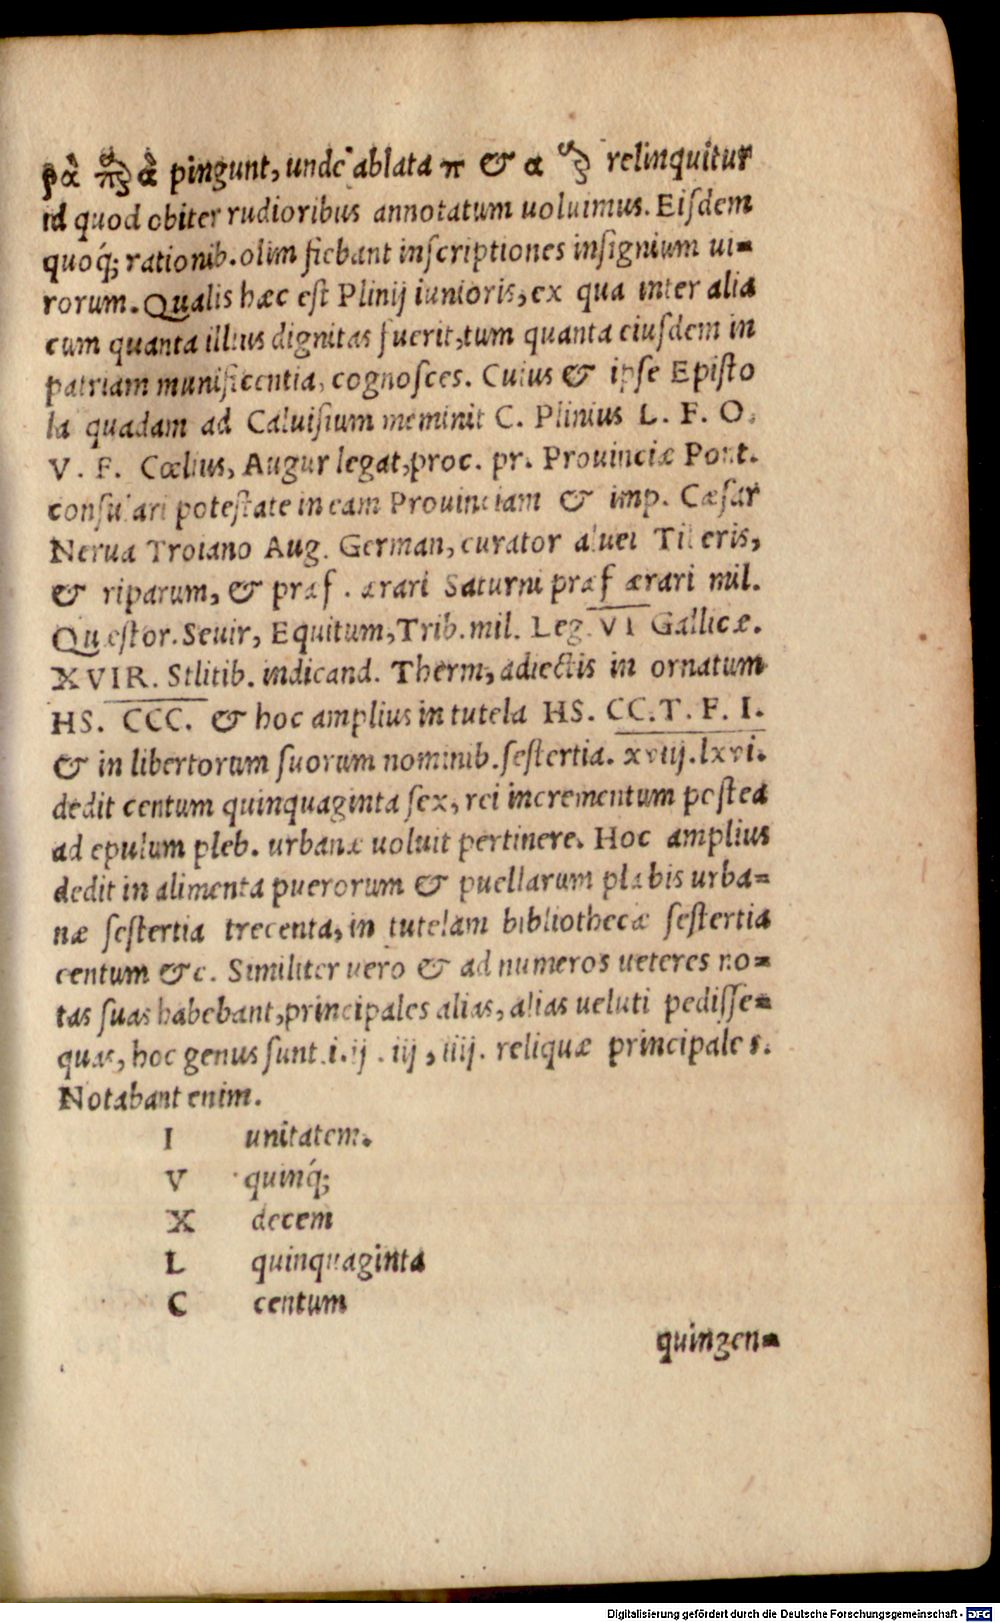 pingunt, unde ablata π & α relinquitur
id quod obiter rudioribus annotatum uoluimus. Eiſdem
quoq́; rationib. olim fiebant inſcriptiones inſignium ui=
rorum. Qualis hæc eſt Plinij iunioris, ex qua inter alia
cum quanta illius dignitas fuerit, tum quanta eiuſdem in
patriam munificentia, cognoſces. Cuius & ipſe Epiſto
la quadam ad Caluiſium meminit C. Plinius L. F. O.
V. F. Cœlius, Augur legat, proc. pr. Prouinciæ Pont.
conſulari poteſtate in eam Prouinciam & imp. Cæſar
Nerua Troiano Aug. German, curator aluei Tiberis,
& riparum, & præf. ærari Saturni præf ærari mil.
Quæſtor. Seuir, Equitum, Trib. mil. Leg. VI Gallicæ.
XVIR. Stlitib. indicand. Therm, adiectis in ornatum
HS. CCC. & hoc amplius in tutela HS. CC. T. F. I.
& in libertorum ſuorum nominib. ſeſtertia. xviij. lxvi.
dedit centum quinquaginta ſex, rei incrementum poſtea
ad epulum pleb. urbanæ uoluit pertinere. Hoc amplius
dedit in alimenta puerorum & puellarum plabis urba=
næ ſeſtertia trecenta, in tutelam bibliothecæ ſeſtertia
centum &c. Similiter uero & ad numeros ueteres no=
tas ſuas habebant, principales alias, alias ueluti pediſſe=
quas, hoc genus ſunt i. ij . iij , iiij. reliquæ principales.
Notabant enim.
I unitatem.
V quinq́;
X decem
L quinquaginta
C centum
quingen=
Digitalisierung gefördert durch die Deutsche Forschungsgemeinschaft - DFG